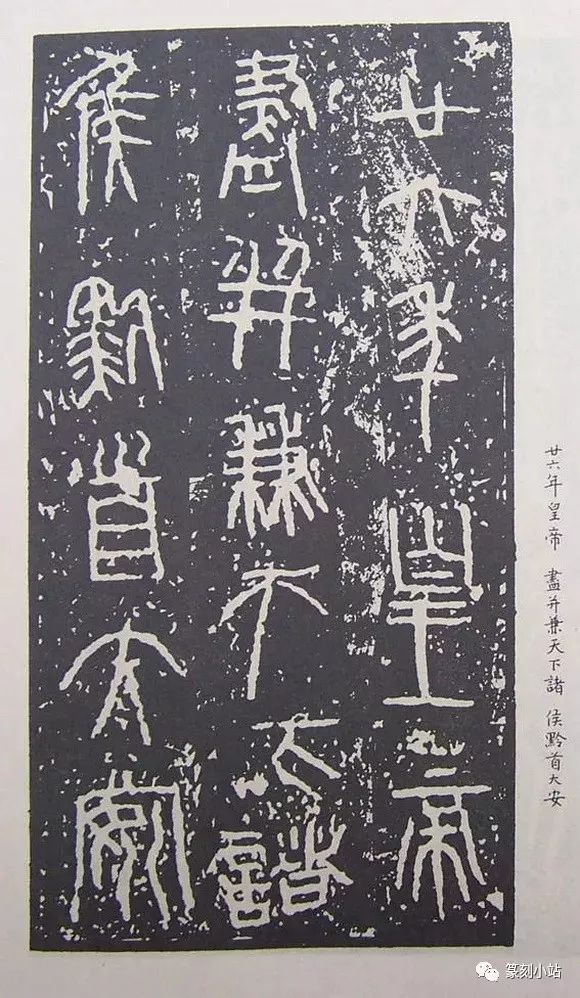 廿六年皇帝
盡并兼天下諸
侯黔首大安
廿六年皇帝 盡并兼天下諸 侯黔首大安
篆刻小站